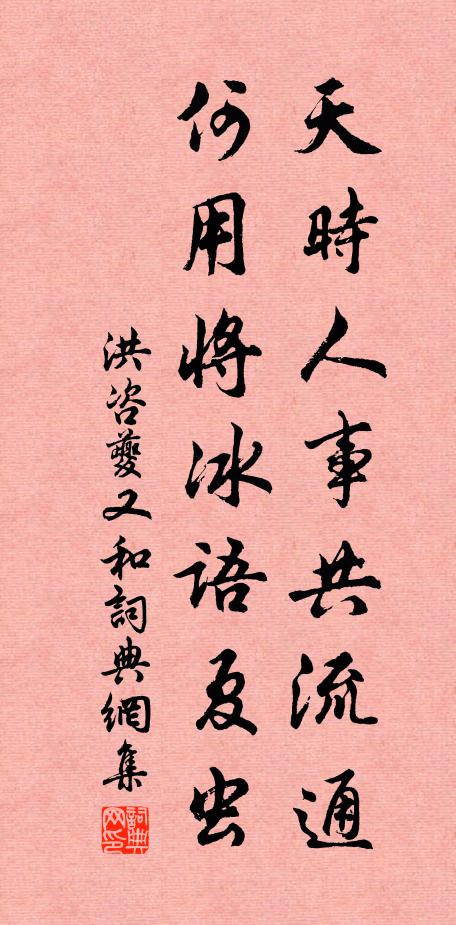 天時人事共流通
何用將冰語夏虫
洪咨夔又和詞典網集
詞典网印